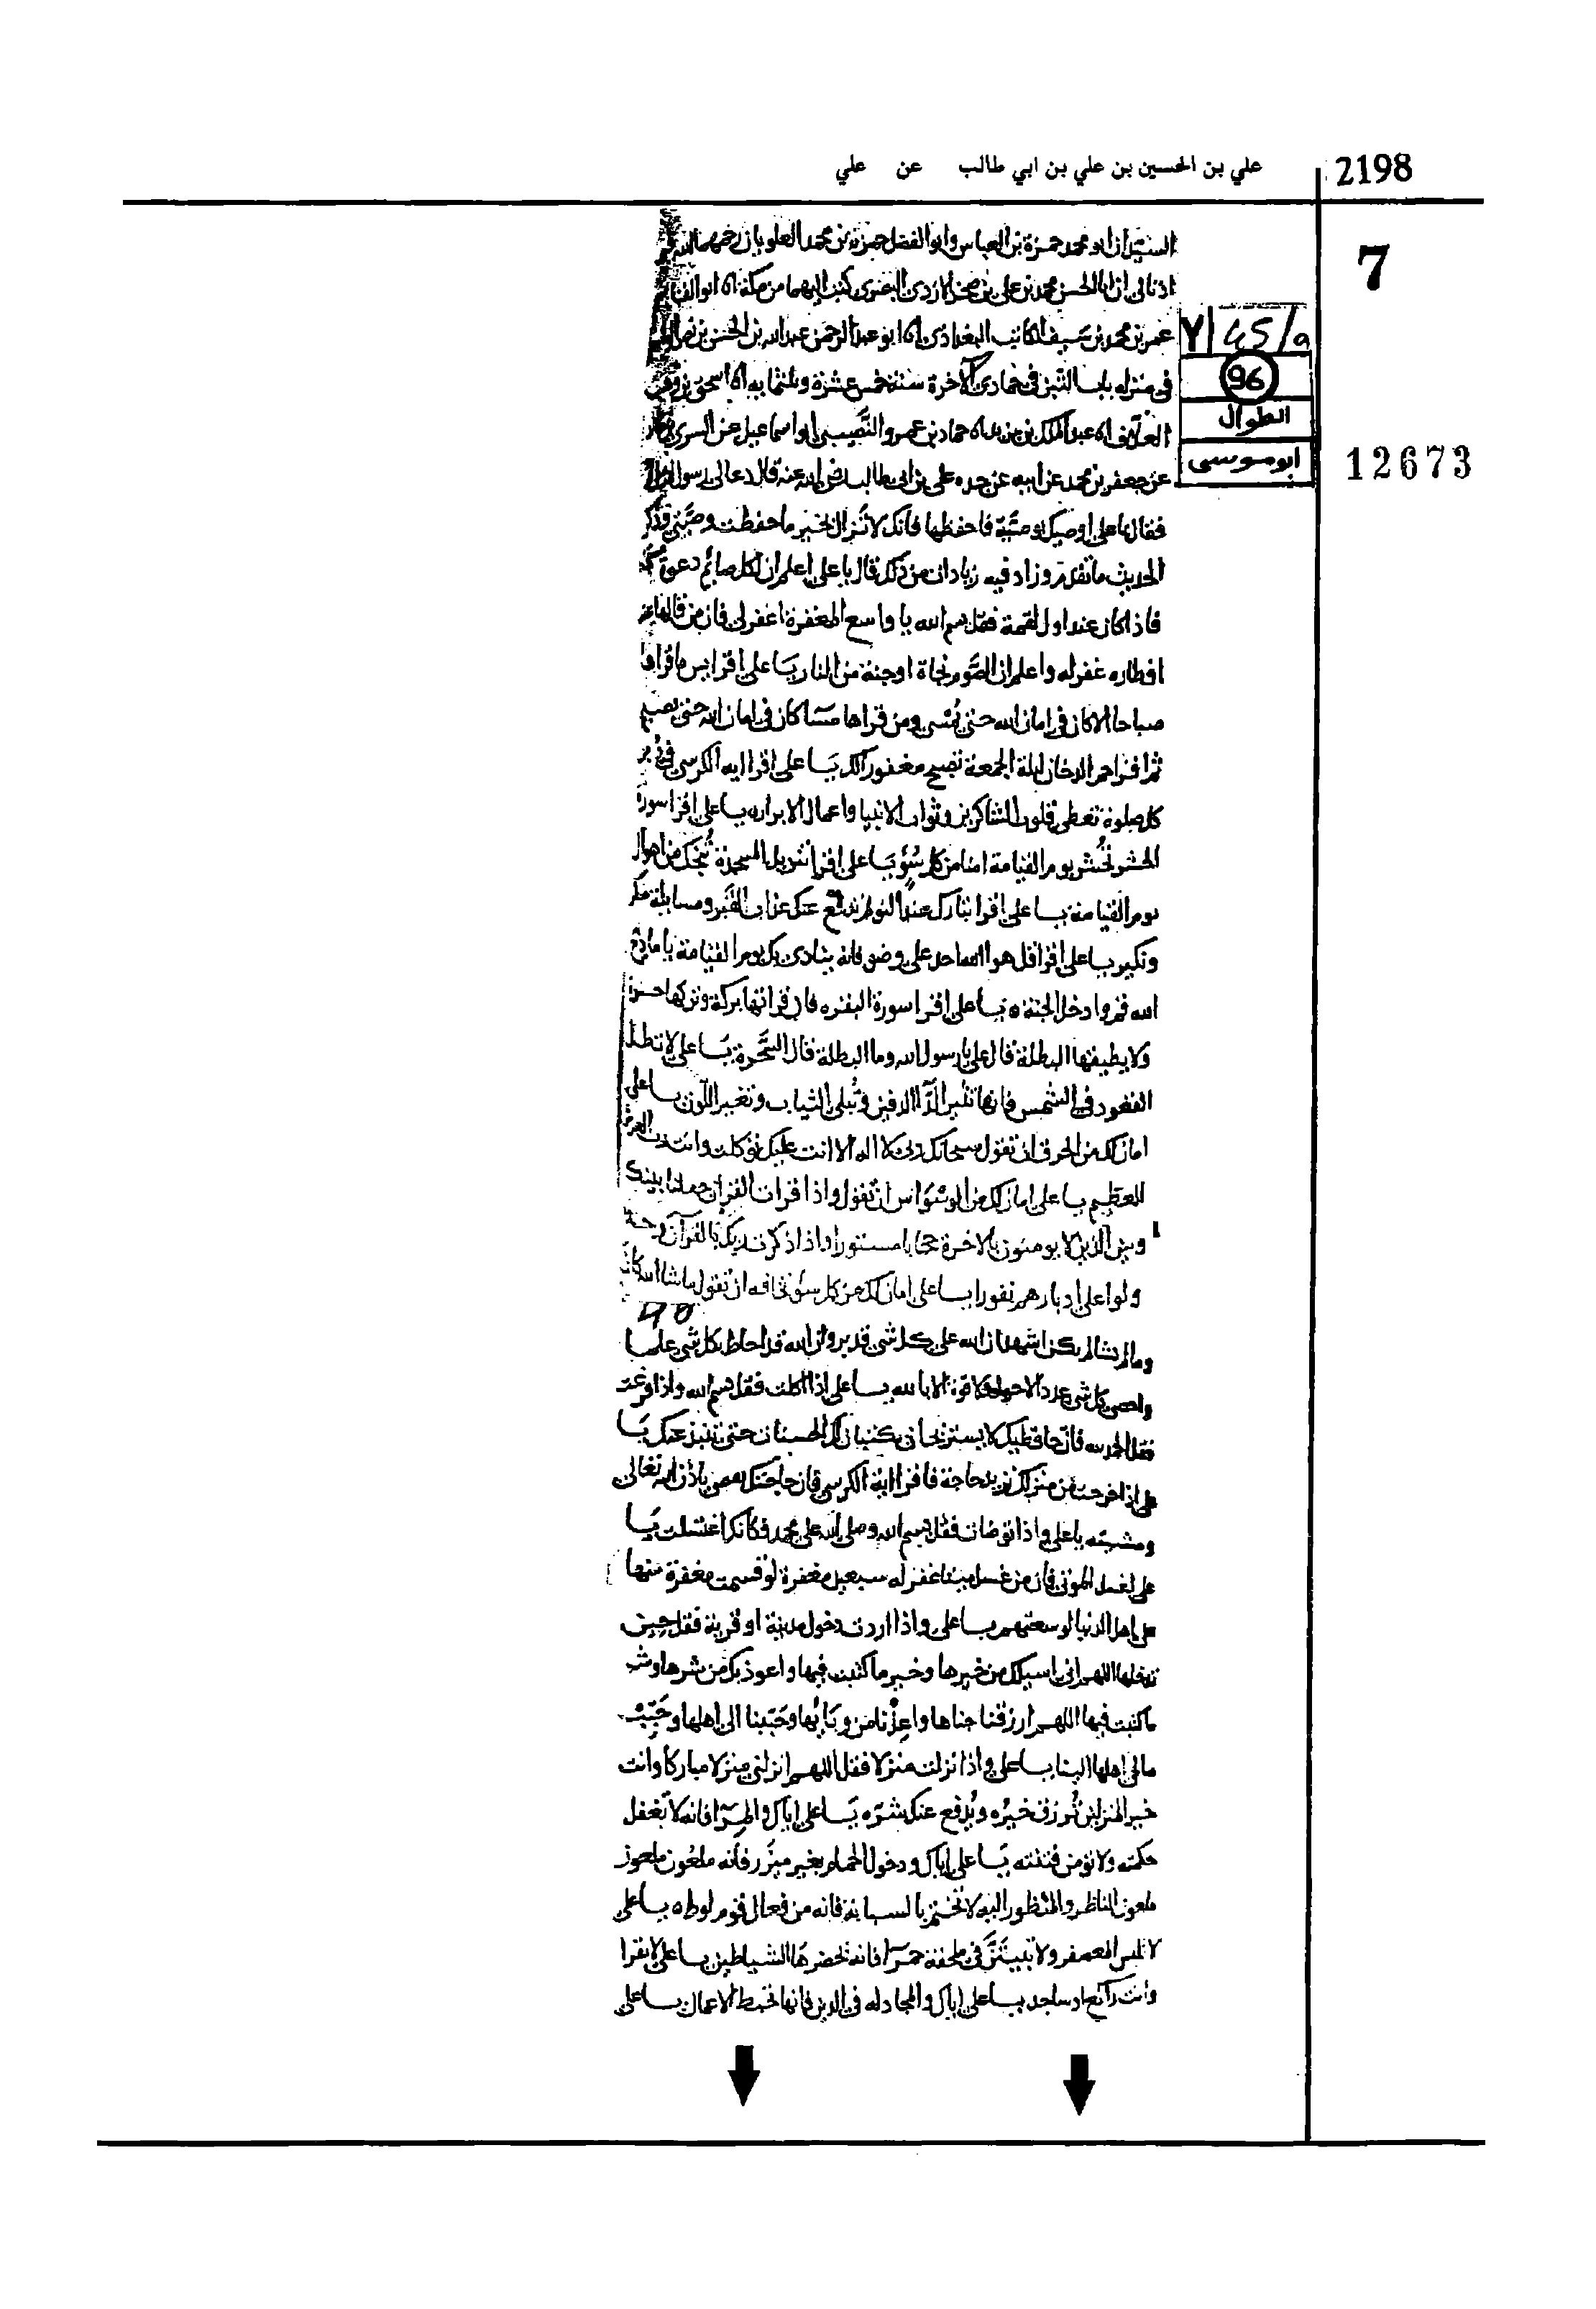 2198
علي بن الحسين بن علي بن ابي طالب عن علي
7
45/a
96
الطوال
ابو موسى
12673
السيدان ابو محمد حمزة بن العباس وابو الفضل حمزة بن محمد العلويان رحمهما الله
اذنا لى ان ابا الحسن محمد بن على بن صخر الازدى البصرى كتب اليهما من مكة انا ابو القاسم
عمر بن محمد بن سيف الكاتب البغدادى انا ابو عبد الرحمن عبد الله بن الحسن بن
فى منزله بباب التبن فى جمادى الآخرة سنة خمس عشرة وثلثمايه انا اسحق بن
العلاف انا عبد الملك بن انا حماد بن عمرو النصيبى ابو اسماعيل عن السرى بن
عن جعفر بن محمد عن ابيه عن جده على بن ابى طالب رضى الله عنه قال دعانى رسول الله
فقال يا على اوصيك بوصية فاحفظها فانك لا تزال بخير ما حفظت وصيتى وذكر
الحديث ما تقدم وزاد فيه زيادات من ذلك قال يا على اعلم ان لكل صائم دعوة
فاذا كان عند اول لقمة فقل بسم الله يا واسع المغفرة اغفر لى فان من قالها عند
افطاره غفر له واعلم ان الصوم نجاة او جنة من النار يا على اقرا يس ما قراها
صباحا الا كان فى امان الله حتى يمسى ومن قراها مسآ كان فى امان الله حتى يصبح
ثم اقرا حم الدخان ليلة الجمعة تصبح مغفورا لك يا على اقرا ايه الكرسى فى دبر
كل صلوة تعطى قلوب الشاكرين وثواب الانبيا واعمال الابرار يا على اقرا سورة
الحشر تحشر يوم القيامة امنا من كل سوء يا على اقرا تنزيل السجدة تنجك من اهوال
يوم القيامة يا على اقرا تبارك عند النوم يدفع عنك عذاب القبر ومسايلة منكر
ونكير يا على اقرا قل هو الله احد على وضو فانه ينادى بك يوم القيامة يا مادح
الله قم وادخل الجنة يا على اقرا سورة البقره فان قرانها بركة وتركها حسرة
ولا يطيقها البطلة قال على يا رسول الله وما البطلة قال السحرة يا على لا تطل
القعود فى الشمس فانها تثير الدآ الدفين وتبلى الثياب وتغير اللون يا على
امان لك من الحرق ان تقول سبحانك ربى لا اله الا انت عليك توكلت وانت رب العرش
العظيم يا على امان لك من الوسواس ان تقول واذا قرات القرآن جعلنا بينك
وبين الذين لا يومنون بالاخرة حجابا مستورا واذا ذكرت ربك بالقرآن وحده
ولوا على ادبارهم نفورا يا على امان لك من كل سوء تخافه ان تقول ما شا الله كان
وما لم يشا لم يكن اشهد ان الله على كل شى قدير وان الله قد احاط بكل شى علما
واحصى كل شى عددا لا حول ولا قوة الا بالله يا على اذا اكلت فقل بسم الله واذا فرغت
فقل الحمد لله فان حافظيك لا يستريحان يكتبان لك الحسنات حتى تنبذ عنك يا
على اذا خرجت من منزلك تريد حاجة فاقرا اية الكرسى فان حاجتك باذن الله تعالى
ومشيته يا على واذا توضات فقل بسم الله وصلى الله على محمد فكانك اغتسلت يا
على اغسل الموتى فان من غسل ميتا غفر له سبعين مغفرة لو قسمت مغفرة منها
على اهل الدنيا لوسعتهم يا على واذا اردت دخول مدينة او قرية فقل حين
تدخلها اللهم انى اسيلك من خيرها وخير ما كتبت فيها واعوذ بك من شرها وشر
ما كتبت فيها اللهم ارزقنا جناها واعذنا من وبائها وحببنا الى اهلها وحبب
صالحى اهلها الينا يا على واذا نزلت منزلا فقل اللهم انزلنى منزلا مباركا وانت
خير المنزلين ترزق خيره ويدفع عنك شره يا على اياك والمرآ فانه لا تعقل
حكمته ولا تومن فتنته يا على اياك ودخول الحمام بغير ميزر فانه ملعون ملعون
ملعون الناظر والمنظور اليه لا تختم بالسبابة فانه من فعال قوم لوط يا على
لا تلبس المعصفر ولا تبيتن فى ملحفة حمرآ فانه تحضرها الشياطين يا على لا تقرا
وانت راكع او ساجد يا على اياك والمجادله فى الدين فانها تحبط الاعمال يا على